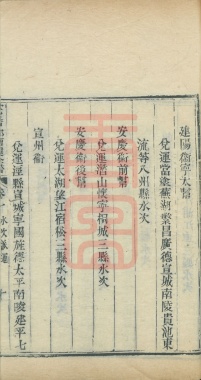 建陽衛寧太幫
兌運當塗蕪湖繁昌廣德宣城南陵貴池東
流等八州縣水次
安慶衛前幫
兌運潛山懷寧桐城三縣水次
安慶衛後幫
兌運太湖望江宿松三縣水次
宣州衛
兌運涇縣宣城寧國旌德太平南陵建平七